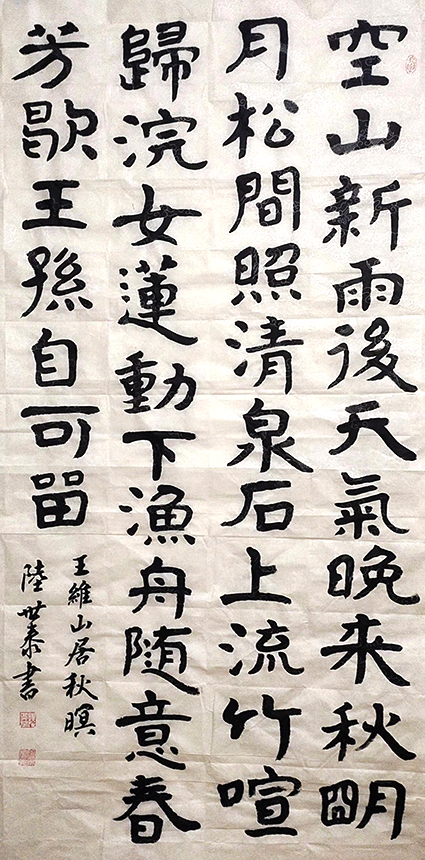 空山新雨後天氣晚来秋朙
月松間照清泉石上流竹喧
歸浣女蓮動下漁舟随意春
芳歇王孫自可留
王維山居秋暝
陸世泰書